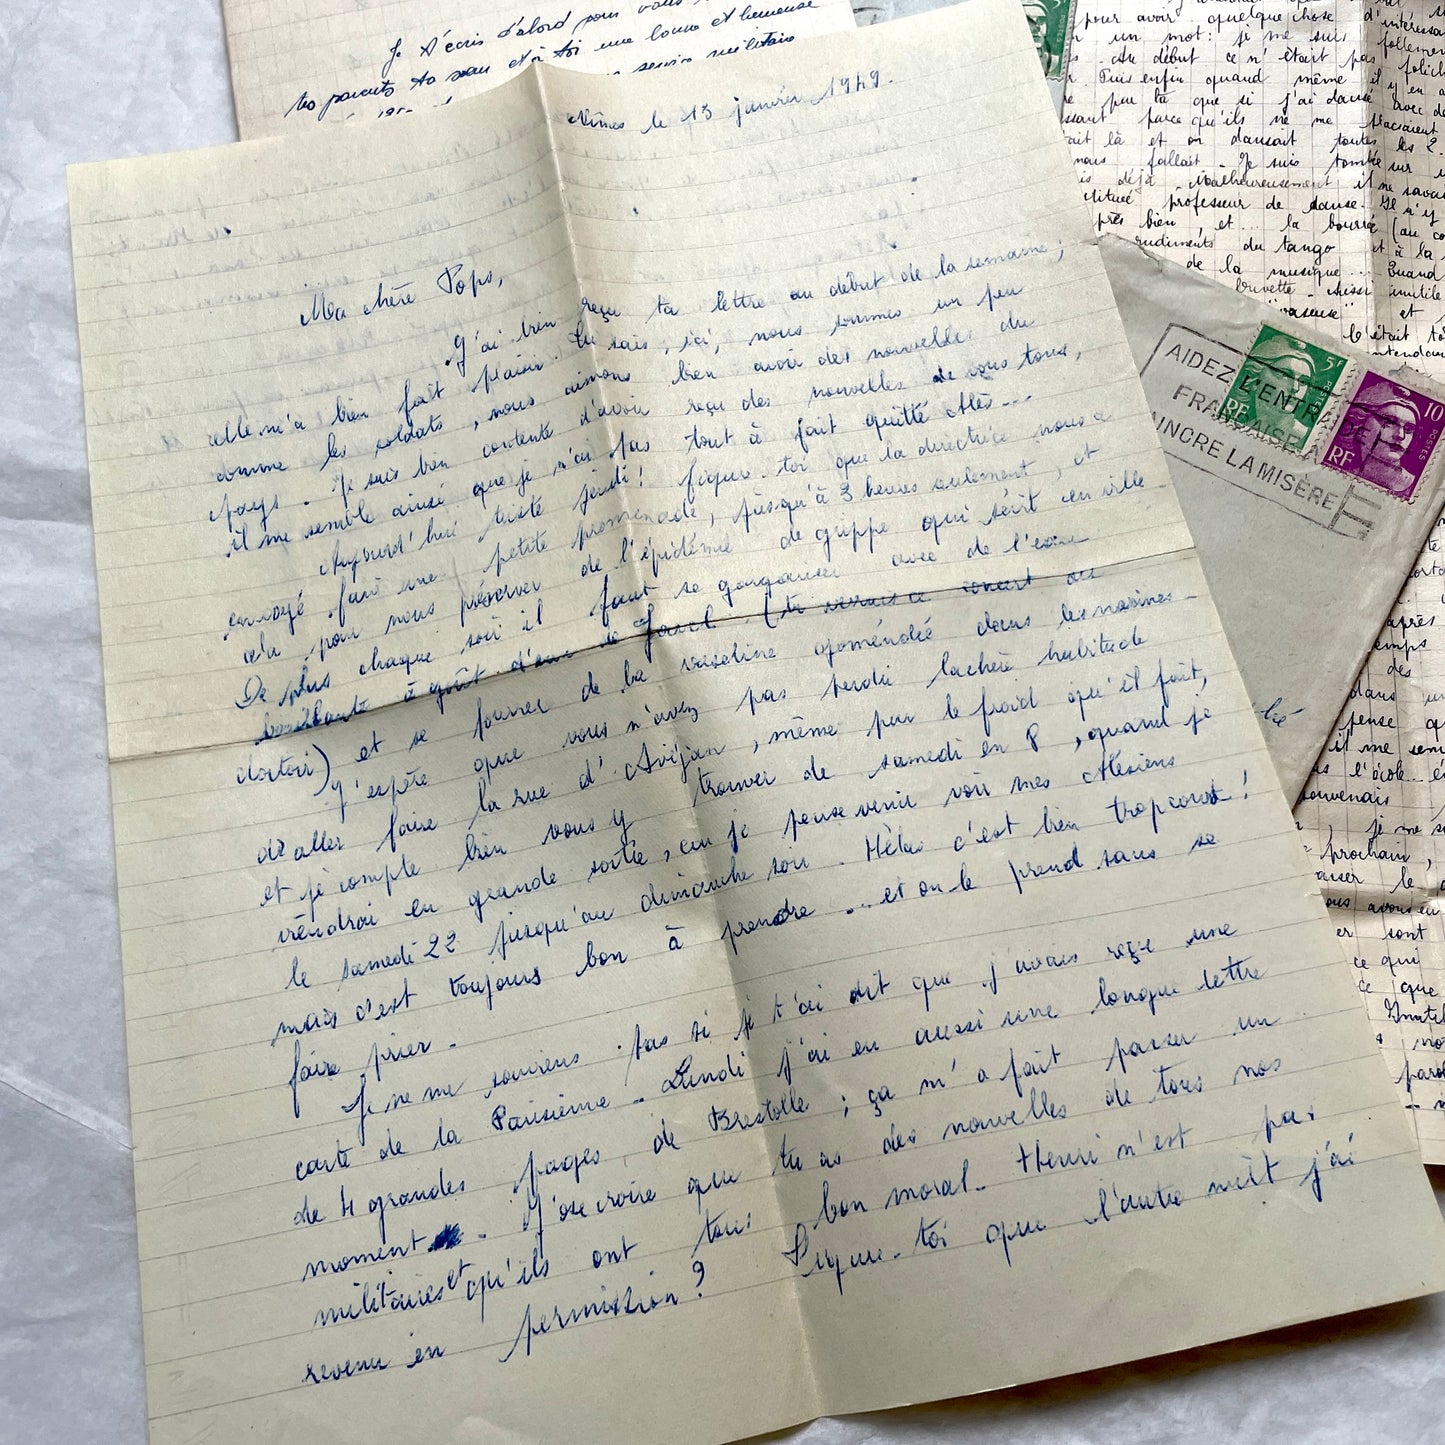 Je t'écris d'abord pour vous
tes parents ta sœur et à toi une bonne et heureuse
service militaire
Nîmes le 13 janvier 1949.
Ma chère Pops,
J'ai bien reçu ta lettre au début de la semaine ;
elle m'a bien fait plaisir. Tu sais, ici, nous sommes un peu
comme les soldats, nous aimons bien avoir des nouvelles du
pays. Je suis bien contente d'avoir reçu des nouvelles de vous tous,
il me semble ainsi que je n'ai pas tout à fait quitté Alès...
Aujourd'hui triste jeudi ! figure-toi que la directrice nous a
envoyé faire une petite promenade, jusqu'à 3 heures seulement, et
cela pour nous préserver de l'épidémie de grippe qui sévit en ville.
De plus chaque soir il faut se gargariser avec de l'eau
bouillante à goût d'eau de Javel (tu verrais ce concert au
dortoir) et se fourrer de la vaseline goménolée dans les narines.
J'espère que vous n'avez pas perdu la chère habitude
d'aller faire la rue d'Avéjan, même par le froid qu'il fait,
et je compte bien vous y trouver de samedi en 8, quand je
viendrai en grande sortie, car je pense venir voir mes Alésiens
le samedi 22 jusqu'au dimanche soir. Hélas c'est bien trop court !
mais c'est toujours bon à prendre ... et on le prend sans se
faire prier.
Je ne me souviens pas si je t'ai dit que j'avais reçu une
carte de la Parisienne. Lundi j'ai eu aussi une longue lettre
de 4 grandes pages, de Brestolle ; ça m'a fait passer un
moment. J'ose croire que tu as des nouvelles de tous nos
militaires et qu'ils ont tous bon moral. Henri n'est pas
revenu en permission ? Figure-toi que l'autre nuit j'ai
pour avoir quelque chose d'intéressa
un mot: je me suis follemen
Au début ce n'était pas folich
Puis enfin quand même il y en a
que si j'ai dansé avec de
parce qu'ils ne me
là et on dansait toutes les 2.
nous fallait. Je suis tombée sur
déjà. Malheureusement il ne savai
professeur de danse. Il n'y
près bien, et... la bourrée (au co
rudiments du tango et à la
de la musique... Quand
buvette. Aussi inutile
et
c'était
AIDEZ L'ENTR'AIDE
FRANÇAISE
VAINCRE LA MISÈRE
5F
POSTES
RF
10
POSTES
RF
après
temps
des
dans un
pense
il me sem
l'école
souvenais
je me
prochain,
le
avons eu
sont
ce qui
ce que